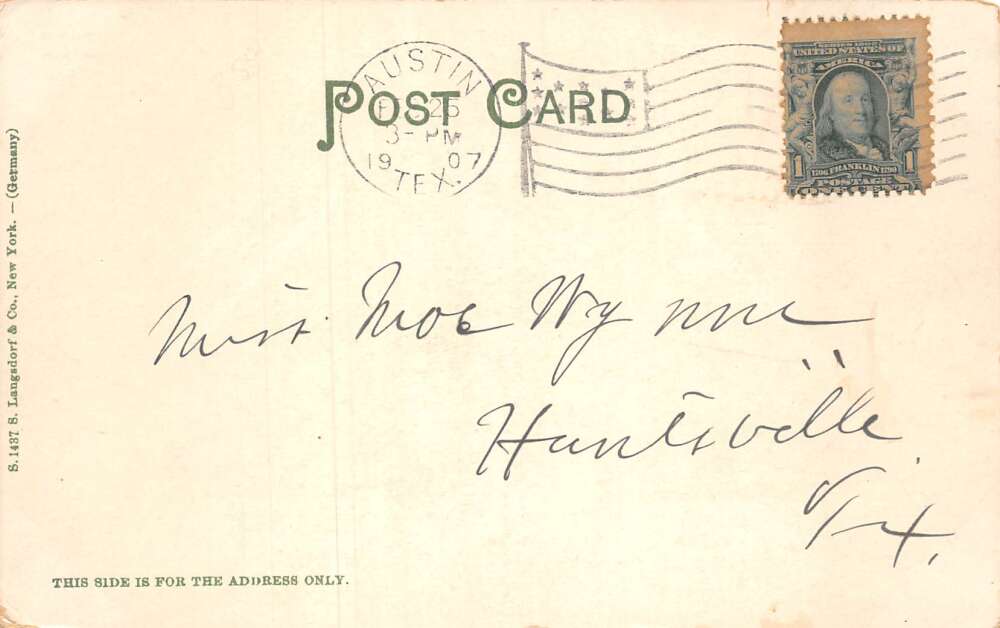 POST CARD
AUSTIN
25
3- PM
19 07
TEX.
SERIES 1902
UNITED STATES OF
AMERICA
1 1
1706 FRANKLIN 1790
POSTAGE
ONE CENT
Miss Wynne
Huntsville
Tx.
S. 1437 S. Langsdorf & Co., New York. — (Germany)
THIS SIDE IS FOR THE ADDRESS ONLY.